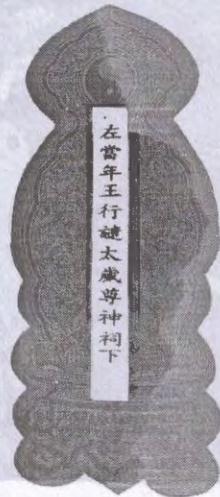 左當年王行譴太歲尊神祠下